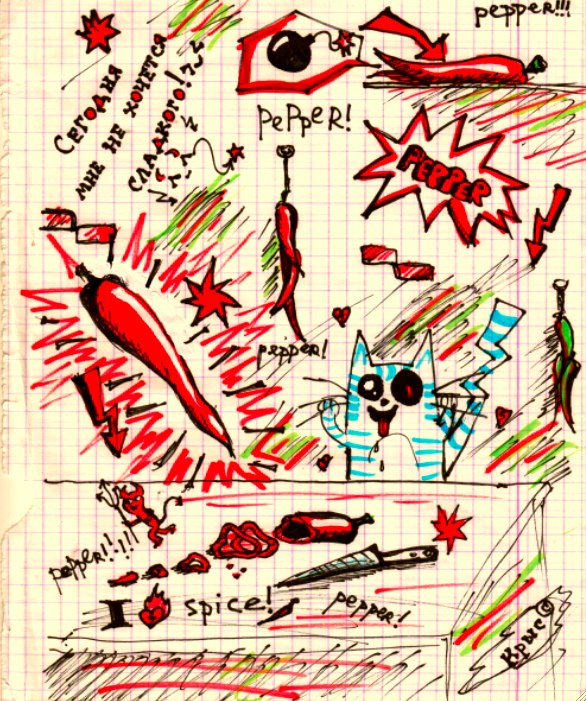 pepper!!!
Сегодня
мне не хочется
сладкого!
PePPeR!
PEPPER
pepper!
pepper!!
I spice!
pepper!
Крыс